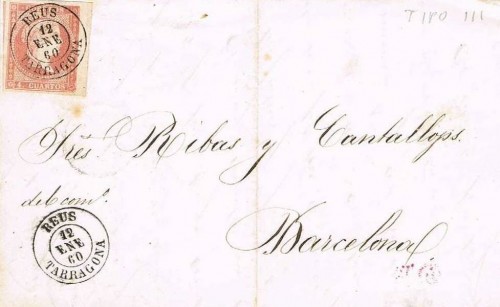 REUS
12
ENE
60
TARRAGONA
CUARTOS
TIPO III
Sres. Ribas y Cantallops.
del com.º
Barcelona
REUS
12
ENE
60
TARRAGONA